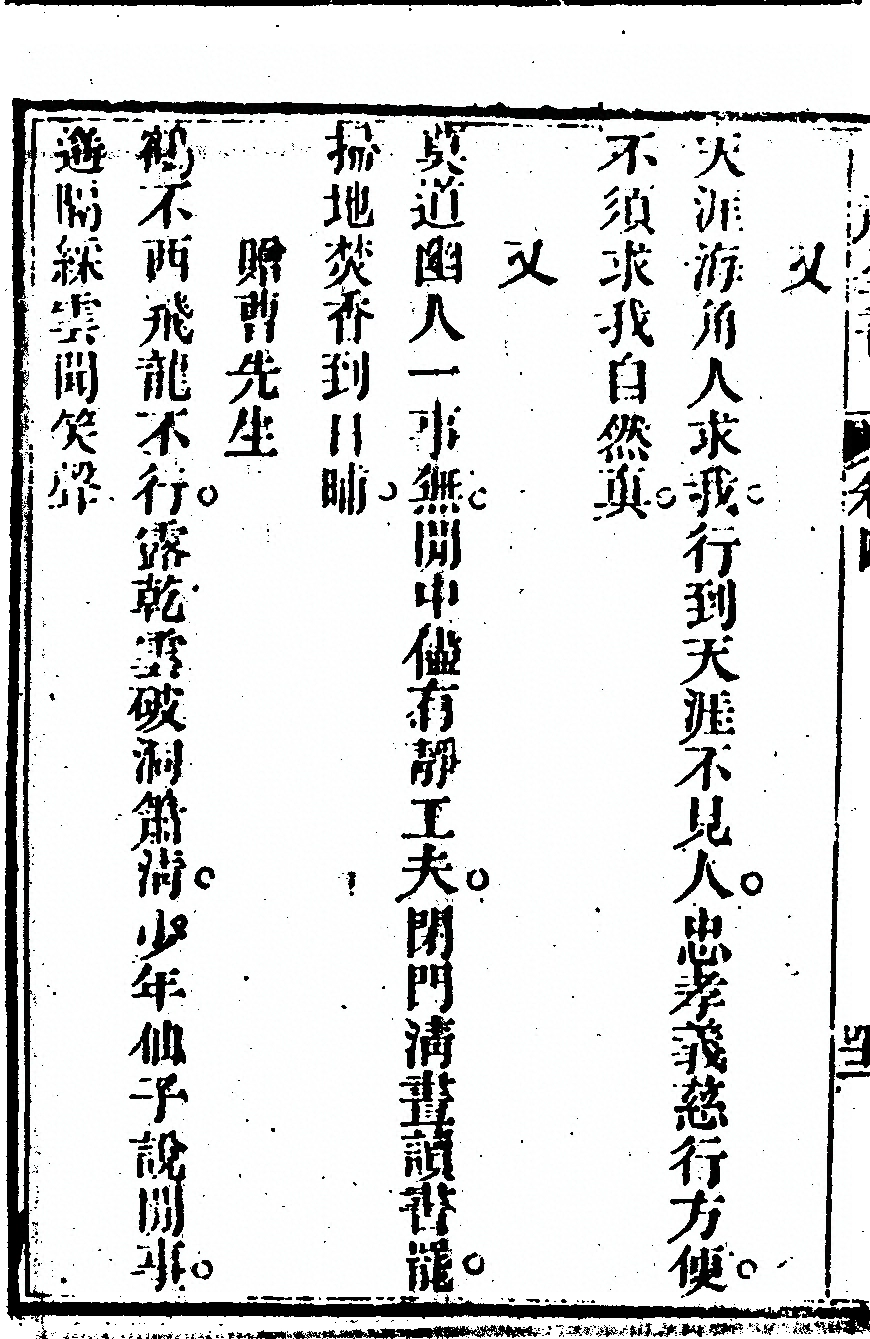 又
天涯海角人求我行到天涯不見人忠孝義慈行方便
不須求我自然真
又
莫道幽人一事無閒中儘有靜工夫閉門清晝讀書罷
掃地焚香到日晡
贈曹先生
鶴不西飛龍不行露乾雲破洞簫清少年仙子說閒事
遙隔綵雲聞笑聲